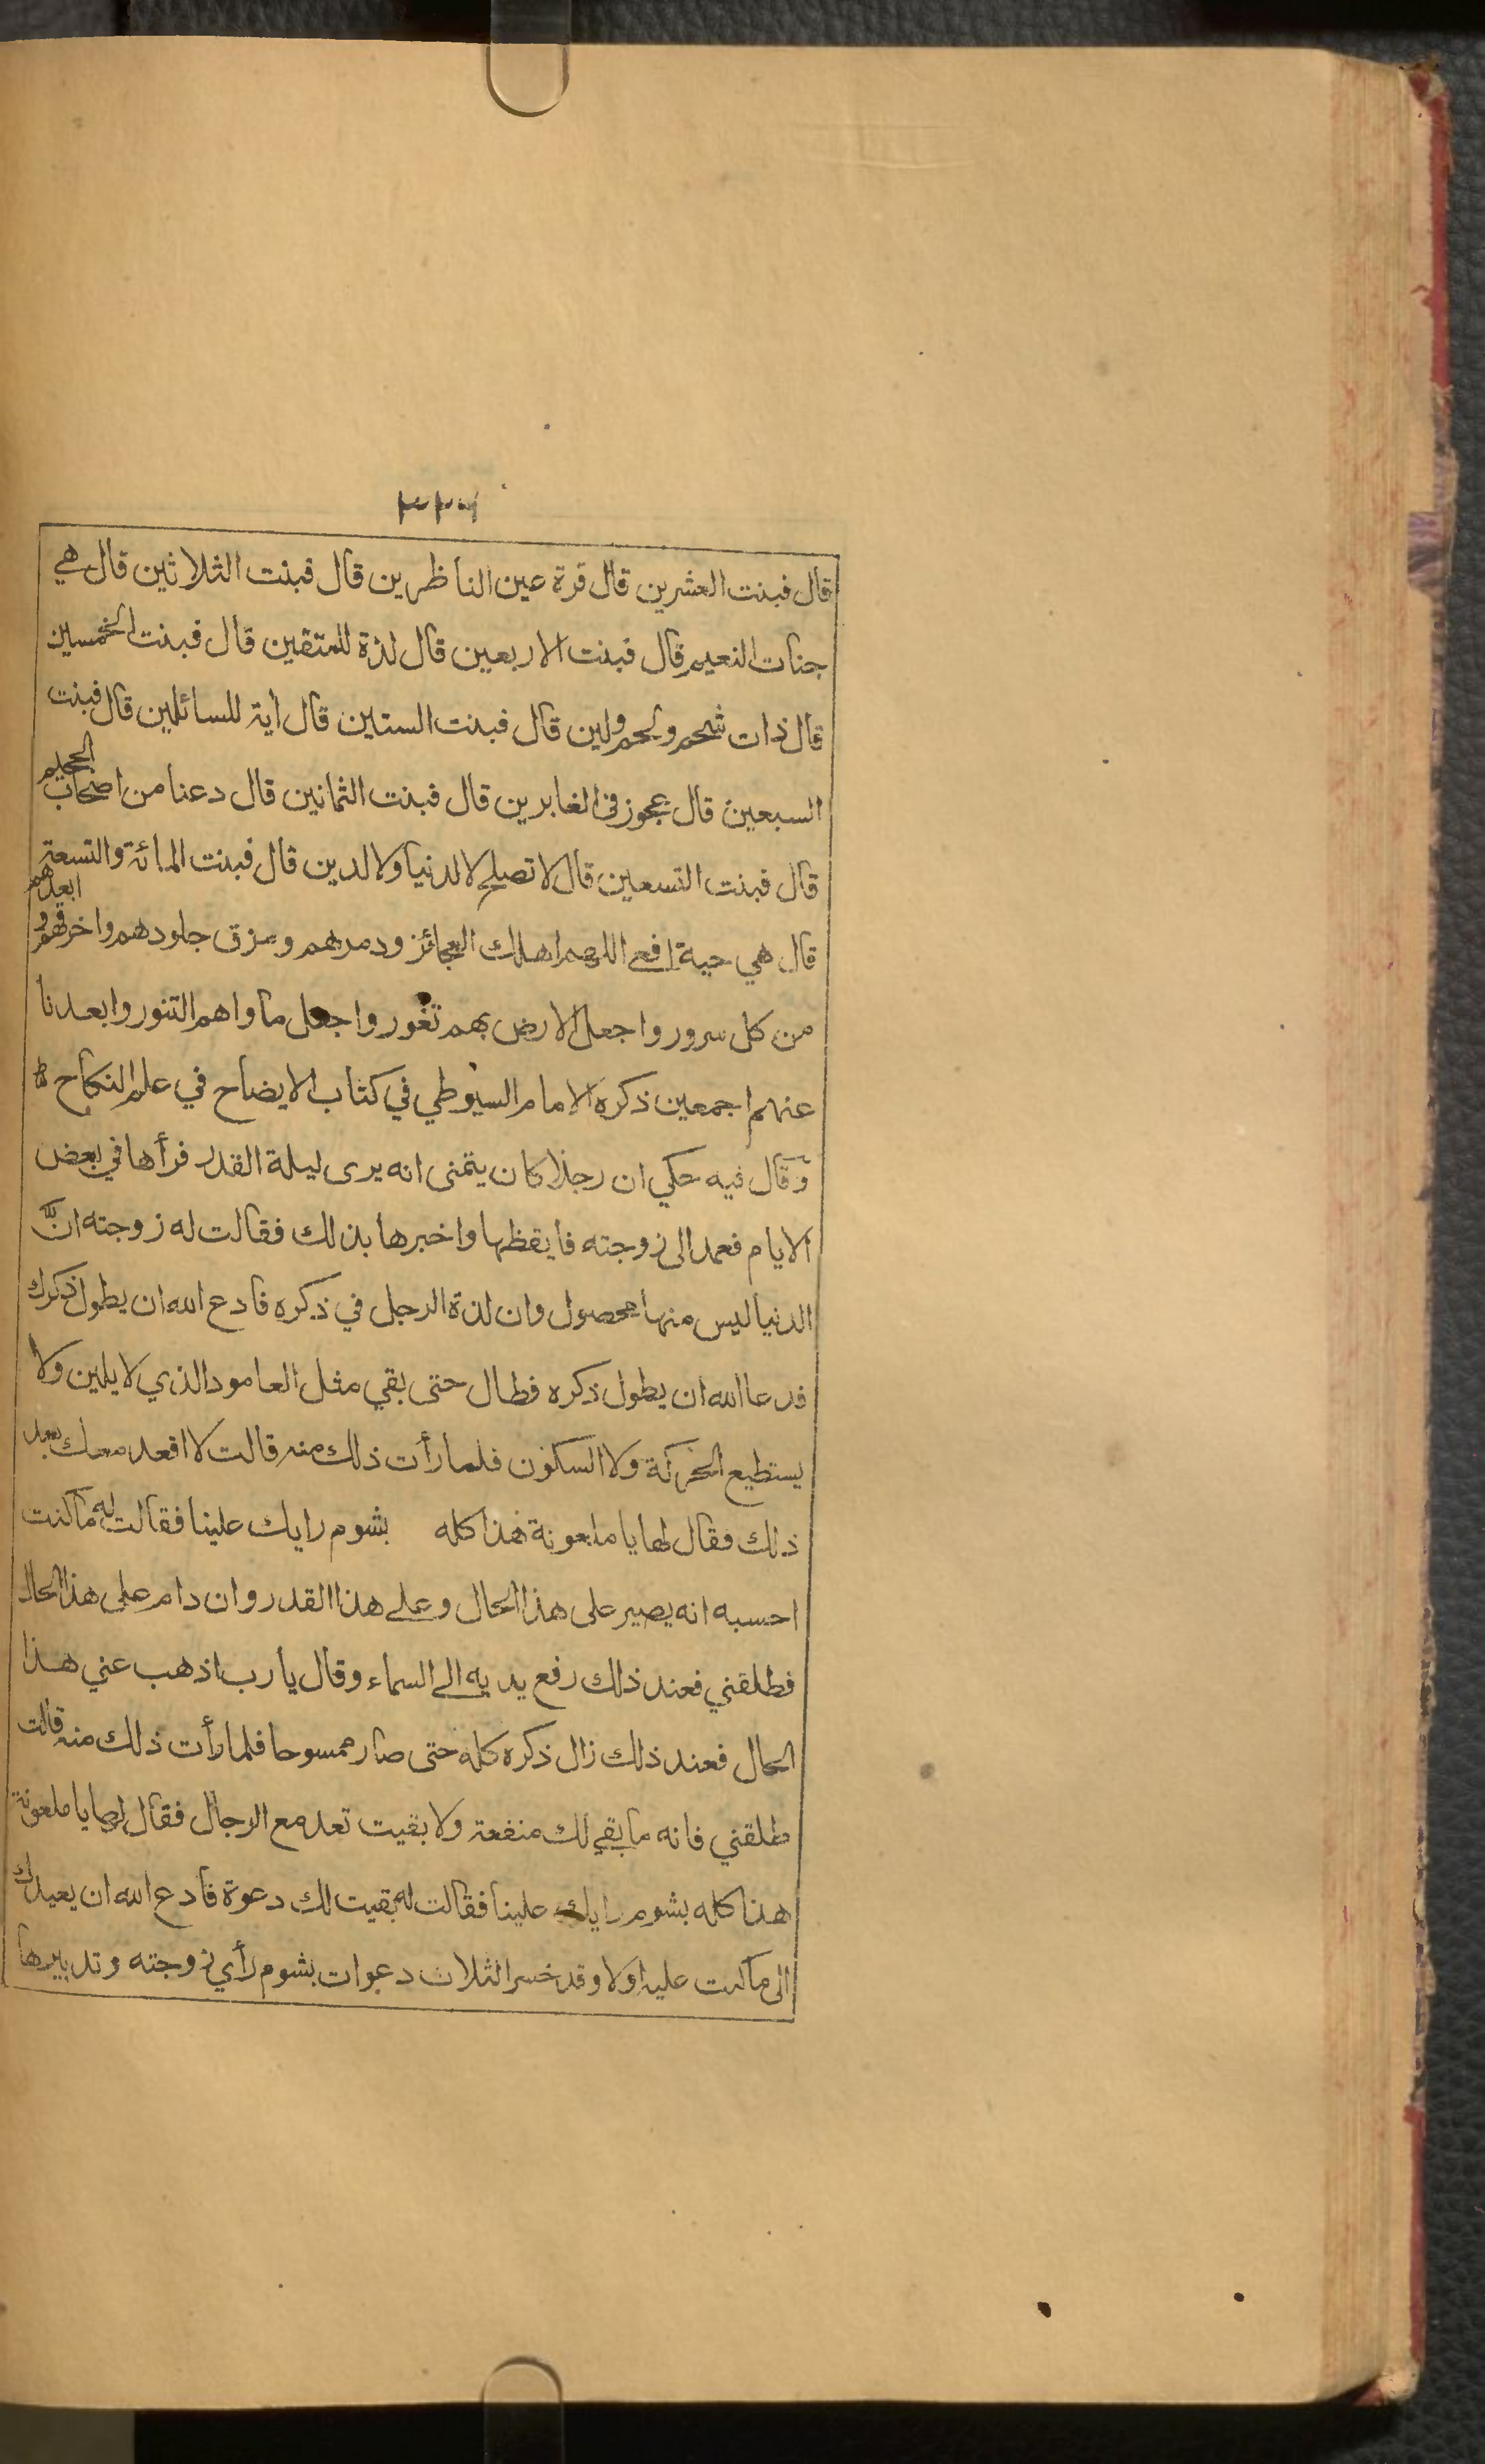 قال فبنت العشرين قال قرة عين الناظرين قال فبنت الثلاثين قال هي
جنات النعيم قال فبنت الاربعين قال لذة للمتقين قال فبنت الخمسين
قال ذات شحم ولحم ولين قال فبنت الستين قال اية للسائلين قال فبنت
السبعين قال عجوز في الغابرين قال فبنت الثمانين قال دعنا من اصحاب الجحيم
قال فبنت التسعين قال لا تصلح لا لدنيا ولا لدين قال فبنت المائة والتسعة
قال هي حية افعى اللهم اهلك العجائز ودمرهم ومزق جلودهم واخرقهم و ابعدهم
من كل سرور واجعل الارض بهم تغور واجعل مأواهم التنور وابعدنا
عنهم اجمعين ذكره الامام السيوطي في كتاب الايضاح في علم النكاح
وقال فيه حكي ان رجلا كان يتمنى انه يرى ليلة القدر فرأها في بعض
الايام فعمد الى زوجته فايقظها واخبرها بذلك فقالت له زوجته ان
الدنيا ليس منها محصول وان لذة الرجل في ذكره فادع الله ان يطول ذكرك
فدعا الله ان يطول ذكره فطال حتى بقي مثل العامود الذي لا يلين ولا
يستطيع الحركة ولا السكون فلما رأت ذلك منه قالت لا اقعد معك بعد
ذلك فقال لها يا ملعونة هذا كله بشوم رايك علينا فقالت له ما كنت
احسبه انه يصير على هذا الحال وعلى هذا القدر وان دام على هذا الحال
فطلقني فعند ذلك رفع يديه الى السماء وقال يا رب اذهب عني هذا
الحال فعند ذلك زال ذكره كله حتى صار ممسوحا فلما رأت ذلك منه قالت
طلقني فانه ما بقي لك منفعة ولا بقيت تعد مع الرجال فقال لها يا ملعونة
هذا كله بشوم رايك علينا فقالت له بقيت لك دعوة فادع الله ان يعيدك
الى ما كنت عليه اولا وقد خسر الثلاث دعوات بشوم رأي زوجته وتدبيرها